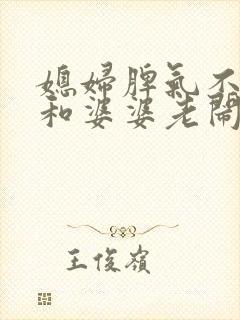 媳婦脾氣不
和婆婆老鬧
王俊嶺